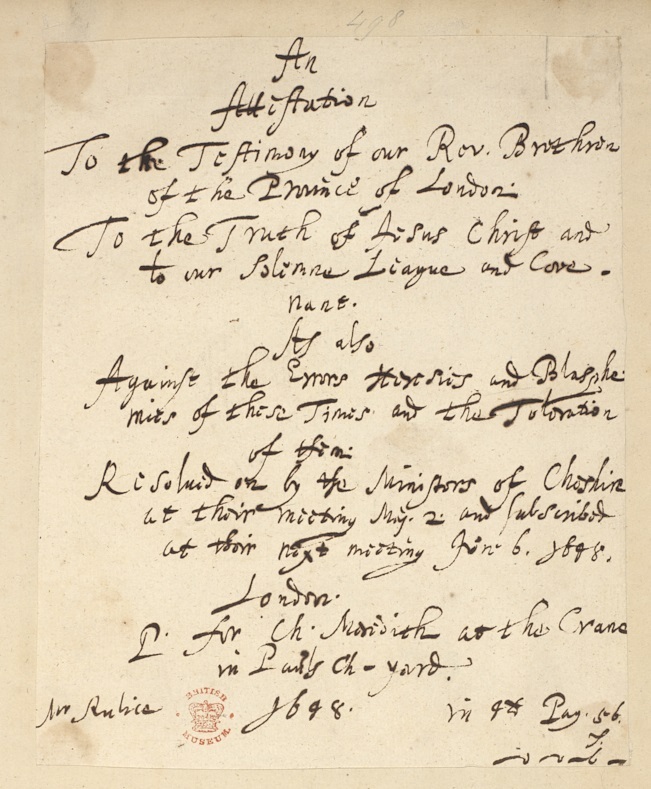 498
An
Attestation
To the Testimony of our Rev. Brethren
of the Province of London:
To the Truth of Jesus Christ and
to our Solemne League and Cove-
nant.
As also
Against the Errors Heresies and Blasphe-
mies of these Times and the Toleration
of them:
Resolued on by the Ministers of Cheshire
at their meeting May. 2. and subscribed
at their next meeting June 6. 1648.
London.
P. for Ch. Meredith at the Crane
in Pauls Ch-yard.
Mr Rulice BRITISH MUSEUM 1648. in 4to Pag. 56.